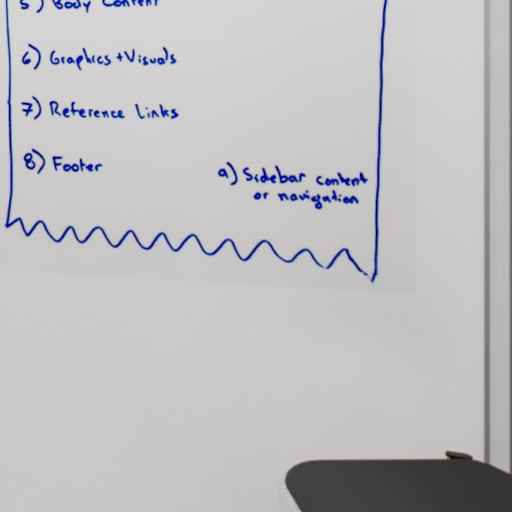 5) Body Content
6) Graphics + Visuals
7) Reference Links
8) Footer
9) Sidebar content
or navigation